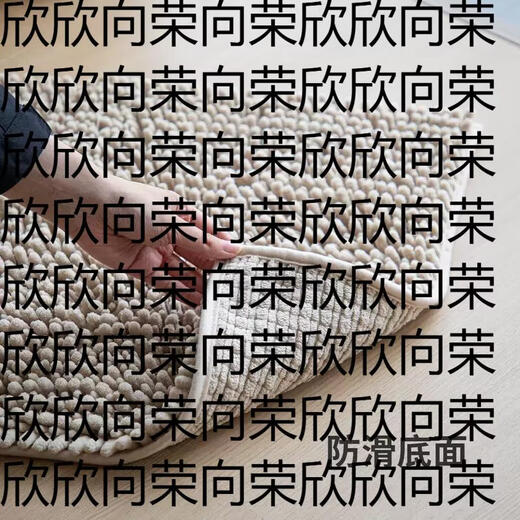 欣欣向荣向荣欣欣向荣
欣欣向荣向荣欣欣向荣
欣欣向荣向荣欣欣向荣
欣欣向荣向荣欣欣向荣
欣欣向荣向荣欣欣向荣
欣欣向荣向荣欣欣向荣
欣欣向荣向荣欣欣向荣
防滑底面
欣欣向荣向荣欣欣向荣